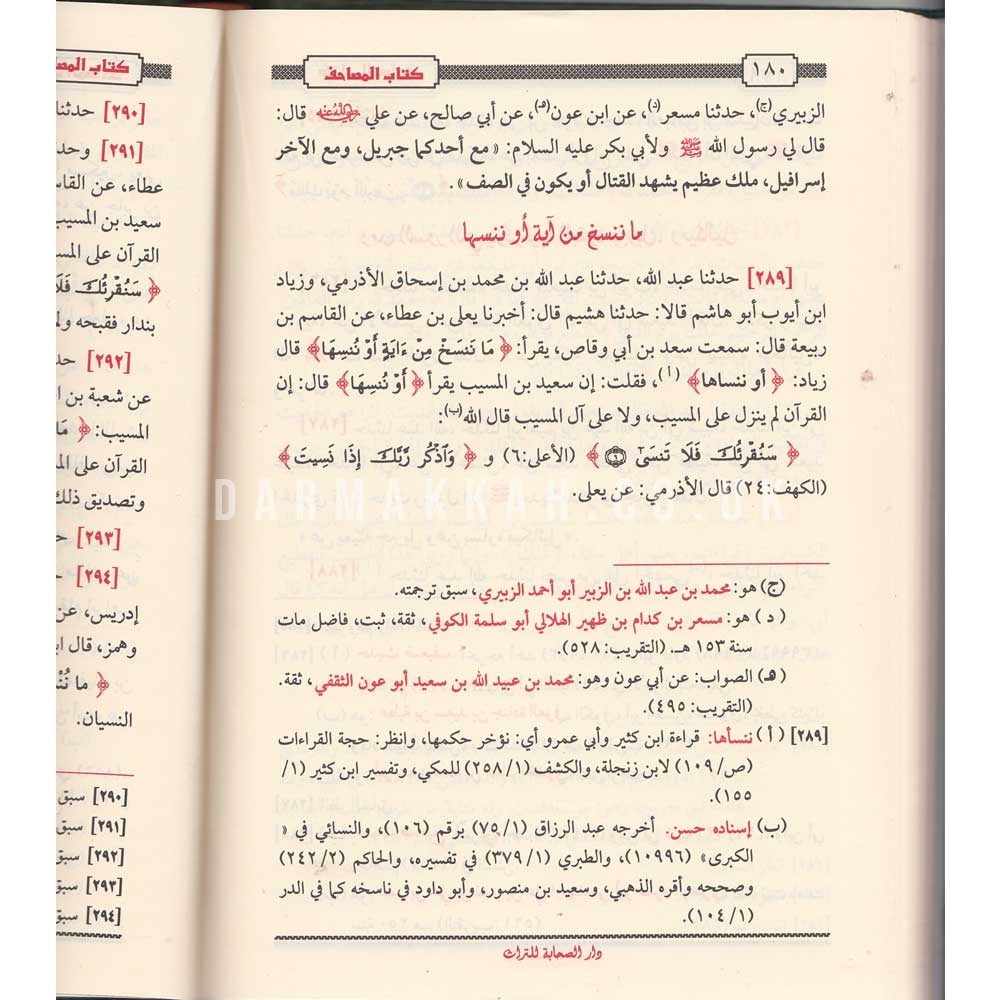 كتاب المصاحف
١٨٠
الزبيري(ج)، حدثنا مسعر(د)، عن ابن عون(هـ)، عن أبي صالح، عن علي رضي الله عنه قال:
قال لي رسول الله ﷺ ولأبي بكر عليه السلام: «مع أحدكما جبريل، ومع الآخر
إسرافيل، ملك عظيم يشهد القتال أو يكون في الصف».
ما ننسخ من آية أو ننسها
[٢٨٩] حدثنا عبد الله، حدثنا عبد الله بن محمد بن إسحاق الأذرمي، وزياد
ابن أيوب أبو هاشم قالا: حدثنا هشيم قال: أخبرنا يعلى بن عطاء، عن القاسم بن
ربيعة قال: سمعت سعد بن أبي وقاص، يقرأ: ﴿ مَا نَنسَخْ مِنْ ءَايَةٍ أَوْ نُنسِهَا﴾ قال
زياد: ﴿ أو ننساها﴾ (أ)، فقلت: إن سعيد بن المسيب يقرأ ﴿ أَوْ نُنسِهَا﴾ قال: إن
القرآن لم ينزل على المسيب، ولا على آل المسيب قال الله(ب):
﴿ سَنُقْرِئُكَ فَلَا تَنسَىٰ ۝٦ ﴾ (الأعلى:٦) و ﴿ وَاذْكُر رَّبَّكَ إِذَا نَسِيتَ ﴾
(الكهف:٢٤) قال الأذرمي: عن يعلى.
(ج) هو: محمد بن عبد الله بن الزبير أبو أحمد الزبيري، سبق ترجمته.
(د) هو: مسعر بن كدام بن ظهير الهلالي أبو سلمة الكوفي، ثقة، ثبت، فاضل مات
سنة ١٥٣ هـ. (التقريب: ٥٢٨).
(هـ) الصواب: عن أبي عون وهو: محمد بن عبيد الله بن سعيد أبو عون الثقفي، ثقة.
(التقريب: ٤٩٥).
[٢٨٩] (أ) ننسأها: قراءة ابن كثير وأبي عمرو أي: نؤخر حكمها، وانظر: حجة القراءات
(ص/ ١٠٩) لابن زنجلة، والكشف (١/ ٢٥٨) للمكي، وتفسير ابن كثير (١/
١٥٥).
(ب) إسناده حسن. أخرجه عبد الرزاق (١/ ٧٥) برقم (١٠٦)، والنسائي في «
الكبرى» (١٠٩٩٦)، والطبري (١/ ٣٧٩) في تفسيره، والحاكم (٢/ ٢٤٢)
وصححه وأقره الذهبي، وسعيد بن منصور، وأبو داود في ناسخه كما في الدر
(١/ ١٠٤).
دار الصحابة للتراث
كتاب
[٢٩٠] حدثنا
[٢٩١]
عطاء، عن
سعيد بن المسيب
القرآن على
﴿ سَنُقْرِئُكَ
بندار فقبحه
[٢٩٢]
عن شعبة بن
المسيب: ﴿
القرآن على
وتصديق ذلك
[٢٩٣]
[٢٩٤]
إدريس، عن
وهمز، قال
﴿ ما
النسيان.
[٢٩٠] سبق
[٢٩١] سبق
[٢٩٢] سبق
[٢٩٣] سبق
[٢٩٤] سبق
DARMAKKAH.CO.UK